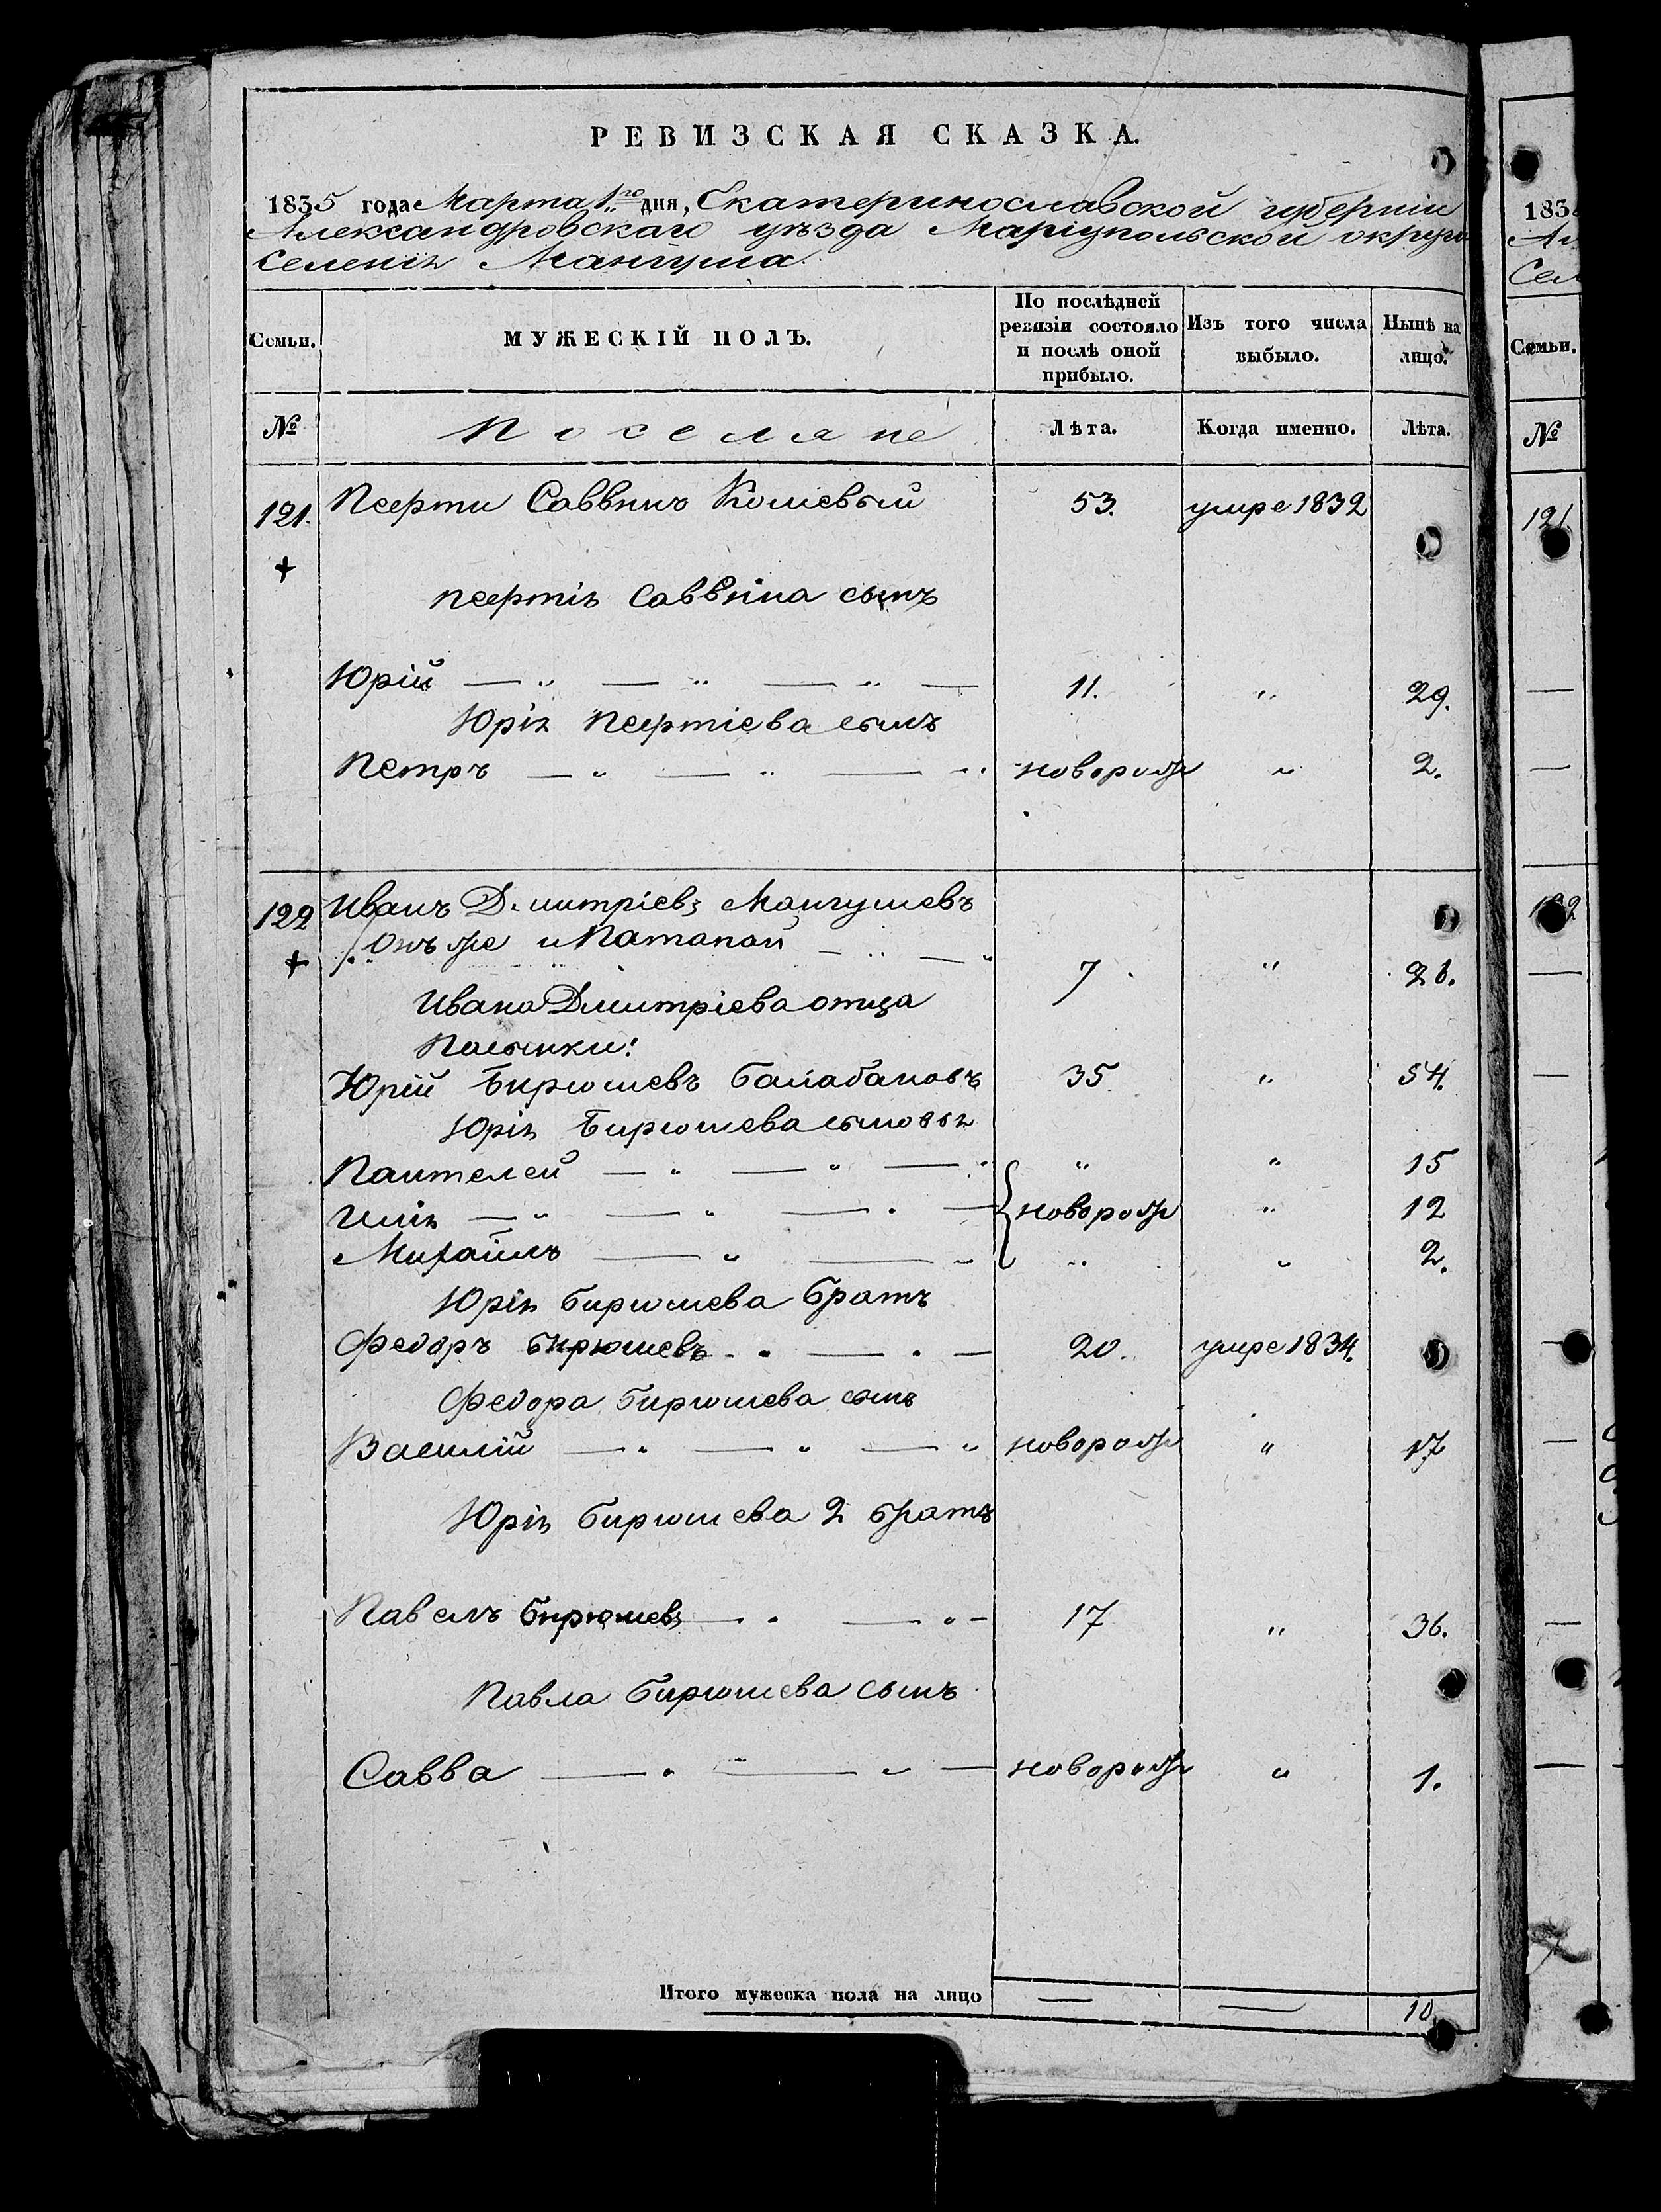 РЕВИЗСКАЯ СКАЗКА.
1835 года Марта 1го дня, Екатеринославской губерніи
Александровскаго уѣзда Маріупольской округи
Селенія Мангуша.
Семьи. МУЖЕСКІЙ ПОЛЪ. По послѣдней ревизіи состояло и послѣ оной прибыло. Изъ того числа выбыло. Нынѣ на лицо.
№ Поселяне Лѣта. Когда именно. Лѣта.
121. Пефти Саввинъ Кошевый 53. умре 1832
+
Пефтія Саввина сынъ
Юрій — „ — „ — „ — 11. „ 29.
Юрія Пефтіева сынъ
Петръ — „ — „ — „ новорож „ 2.
122 Иванъ Дмитріевъ Мангушевъ
+ Онъ же и Патапай — „ — „ 7 „ 26.
Ивана Дмитріева отца
Пасынки:
Юрій Бирюшевъ Балабановъ 35 „ 54.
Юрія Бирюшева сыновья
Пантелей — „ — „ — „ „ „ 15
Илія — „ — „ — „ — новорож „ 12
Михайлъ — „ — „ „ „ 2.
Юрія Бирюшева братъ
Федоръ Бирюшевъ — „ — „ — 20. умре 1834.
Федора Бирюшева сынъ
Василій — „ — „ — „ новорож „ 17
Юрія Бирюшева 2 братъ
Павелъ Бирюшевъ — „ — „ — 17 „ 36.
Павла Бирюшева сынъ
Савва — „ — „ — новорож „ 1.
Итого мужеска пола на лицо — — 10.
183
Ал
Сел
Семьи.
№
121
122